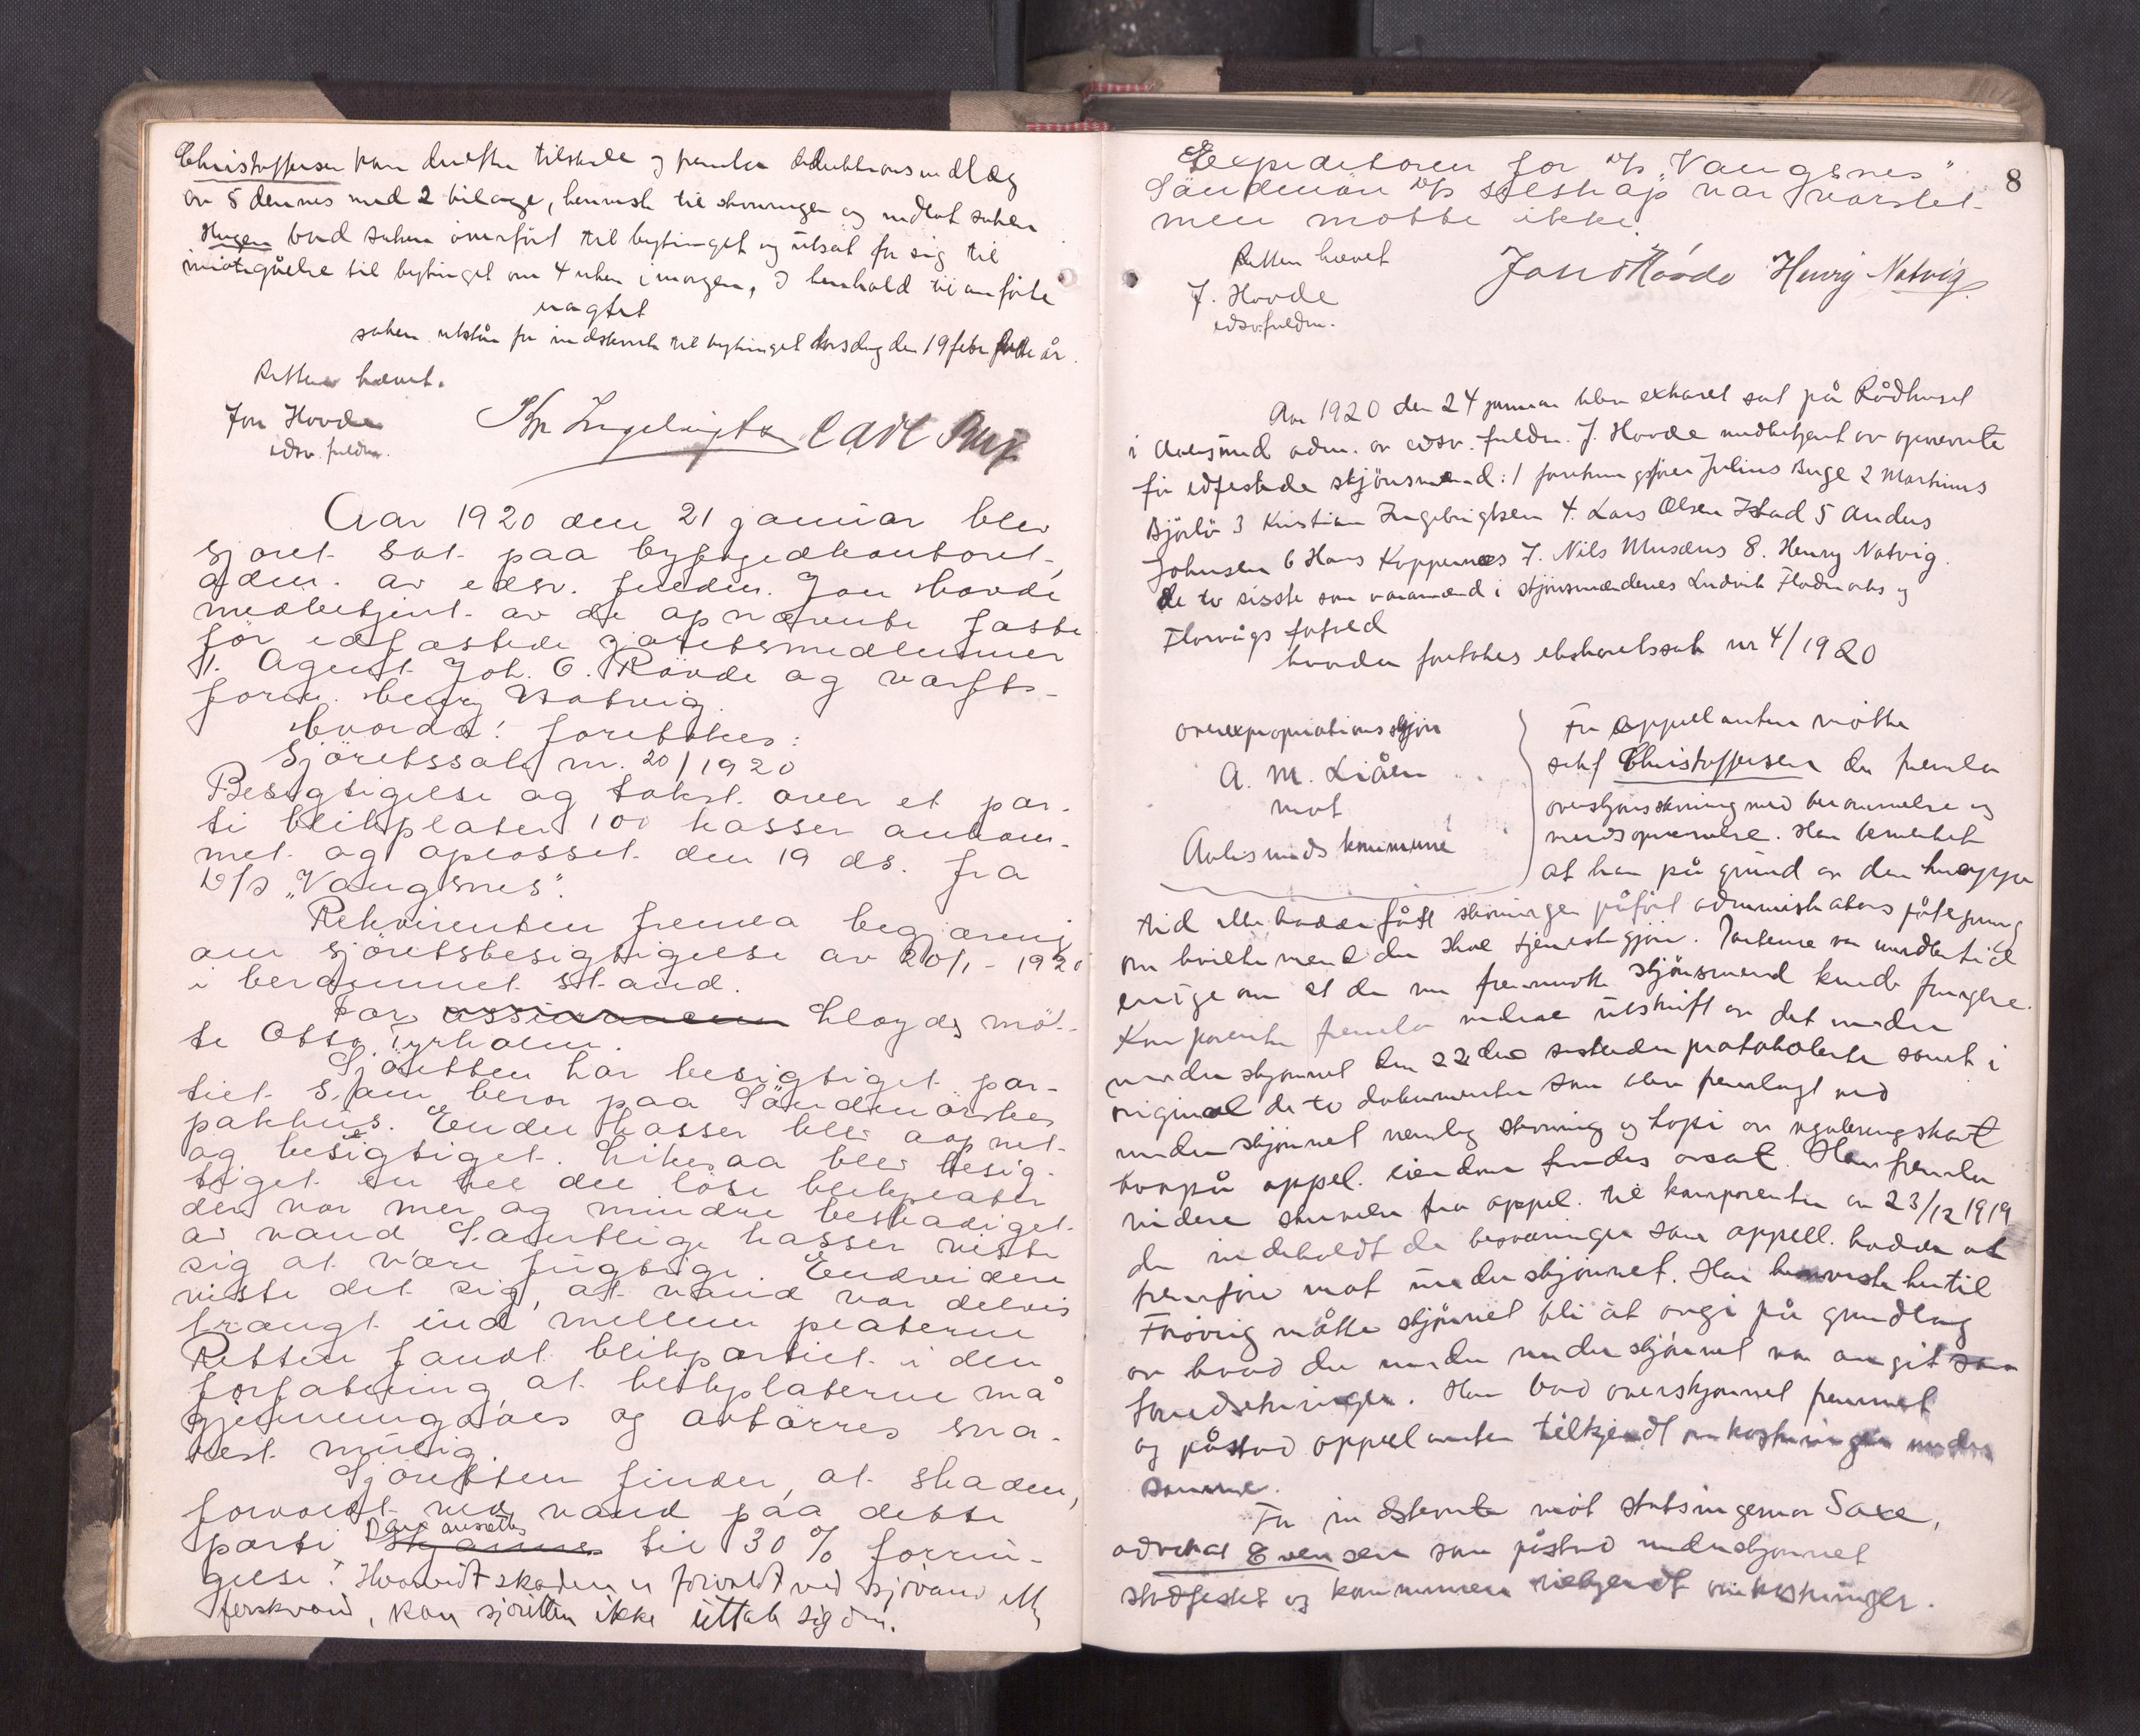 Christoffersen kom derefter tilstede og fremla deduktionsindlæg
av 5 dennes med 2 bilage, henviste til stevningen og indlot saken
Hugen bad saken overført til bytinget og utsat for sig til
imøtegåelse til bytinget om 4 uker i morgen, I henhold til anførte
nagtet
saken utstår for indstevnte til bytinget torsdag den 19 febr dette år.
Retten hævet.
Jon Hovde
edsv. fuldm.
Aar 1920 den 21 januar blev
sjøret sat paa byfogedkontoret,
adm. av edsv. fuldm. Jon Hovde
medbetjent av de opnævnte faste
før edfæstede sjøretsmedlemmer
1. Agent Joh. O. Røvde og værfts-
form. Henry Natvig.
Hvorda: foretokes:
Sjøretssak nr. 20/1920
Besigtigelse og takst over et par-
ti blikplater 100 kasser ankom-
met og oplosset den 19 ds. fra
D/S "Vangsnes".
Rekvirenten fremla begjæring
om sjøretsbesigtigelse av 20/1 - 1920
i berammet stand.
For assurancen Lloyds møt-
te Otto Tyrholm.
Sjøretten har besigtiget par-
tiet som beror paa Söndmörskes
pakhus. Endel kasser blev aapnet
og besigtiget. Likesaa blev besig-
tiget en del løse blikplater
der var mer og mindre beskadiget
av vand Samtlige kasser viste
sig at være fugtige. Endvidere
viste det sig, at vand var delvis
trængt ind mellem platerne
Retten fandt blikpartiet i den
forfatning at blikplaterne må
gjennemgåes og avtørres sna-
rest mulig.
Sjøretten finder, at skaden,
forvoldt ved vand paa dette
parti kan ansættes til 30 % forrin-
gelse. Hvorvidt skaden er forvoldt ved sjøvand eller
ferskvand, kan sjøretten ikke uttale sig om.
8
Expeditören for D/S "Vangsnes"
Söndmön D/S selskap var varslet
men møtte ikke.
Retten hævet
J. Hovde
edsv.fuldm.
Henry Natvig.
Aar 1920 den 24 januar blev ekstraret sat på Rådhuset
i Aalesund adm. av edsv. fuldm. J. Hovde medbetjent av opnævnte
før edfestede skjönsmænd: 1 forretningsfører Julius Buge 2 Martinus
Bjørlo 3 Kristian Ingebrigtsen 4. Lars Olsen Istad 5 Anders
Johnsen 6 Hans Koppernæs 7. Nils Musæus 8. Henry Natvig.
de to sisste som varamænd i skjönsmændenes Ludvik Flodmarks og
Flovågs forfald
hvorda foretokes ekstraretssak nr 4/1920
overexpropriationsskjön
A. M. Liåen
mot
Aalesunds kommune
For appellanten møtte
sakf Christoffersen der fremla
overskjönsstevning med berammelse og
mendsopnevnelse. Han bemerket
at han på grund av den knappe
tid ikke hadde fått stevningen påført administrators påtegning
om hvilke mend der skal tjenestegjøre. Parterne var imidlertid
enige om at de nu fremmøtte skjönsmend kunde fungere.
Komparenten fremla videre utskrift av det under
underskjønnet den 22 des sistleden protokolerte samt i
original de to dokumenter som blev fremlagt ved
underskjønnet nemlig stevning og kopi av reguleringskart
hvorpå appel. eiendom findes avsat. Han fremla
videre skrivelse fra appel. til komparenten av 23/12 1919
der indeholdt de besværinger som appell. hadde at
fremføre mot underskjønnet. Han henviste hertil
Forøvrig måtte skjønnet bli at avgi på grundlag
av hvad der under underskjønnet var angit som
forutsetninger. Han bad overskjønnet fremmet
og påstod appellanten tilkjendt omkostninger under
samme.
For indstevnte møt statsingeniør Saxe,
advokat Evensen som påstod underskjønnet
stadfestet og kommunen tilkjendt omkostninger.